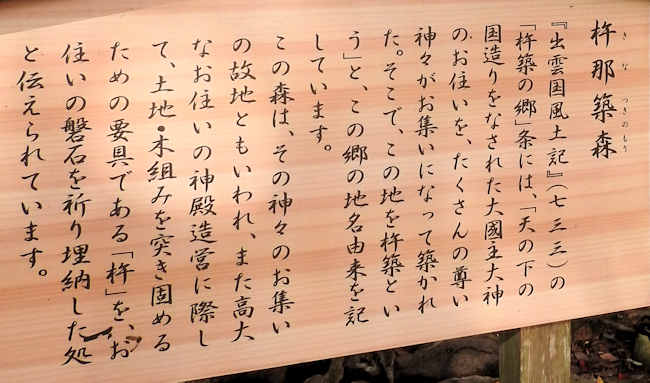 杵那築森
きなつきのもり
『出雲国風土記』(七三三)の
「杵築の郷」条には、「天の下の
国造りをなされた大國主大神
のお住いを、たくさんの尊い
神々がお集いになって築かれ
た。そこで、この地を杵築とい
う」と、この郷の地名由来を記
しています。
この森は、その神々のお集い
の故地ともいわれ、また高大
なお住いの神殿造営に際し
て、土地・木組みを突き固める
ための要具である「杵」を、お
住いの磐石を祈り埋納した処
と伝えられています。